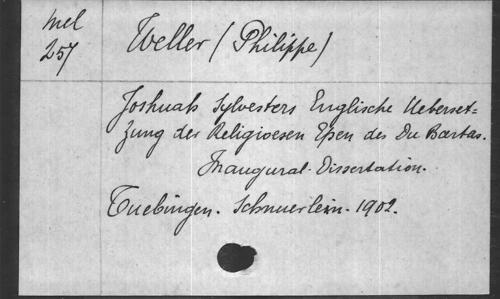 Mel
257
Weller (Philippe)
Joshuah Sylvesters Englische Ueberset=
zung der Religioesen Epen des Du Bartas.
Inaugural-Dissertation.
Tuebingen. Schnuerlein. 1902.